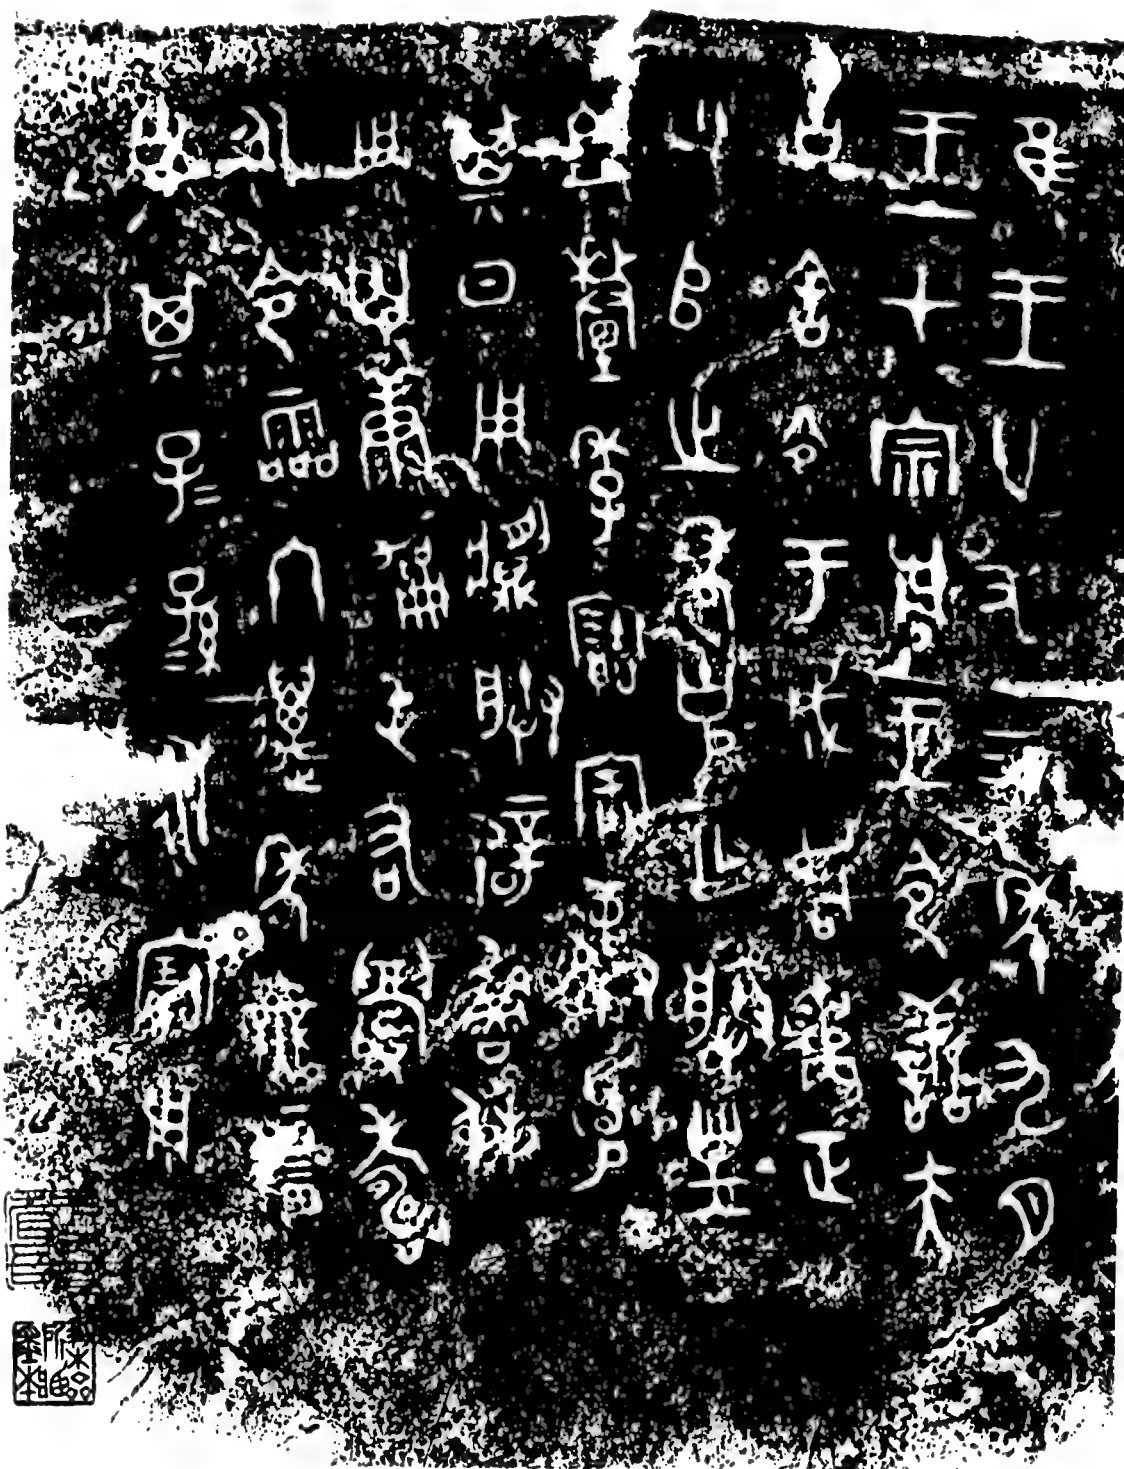 隹王廿又三年九月
王才宗周王令善夫
克舍令于成周遹正
八𠂤之年克乍朕皇
且釐季寶宗彝克
其日用𩰫朕辟魯休
用匄康勵屯右眉壽
永令霝冬萬年無疆
克其子=孫=永寶用